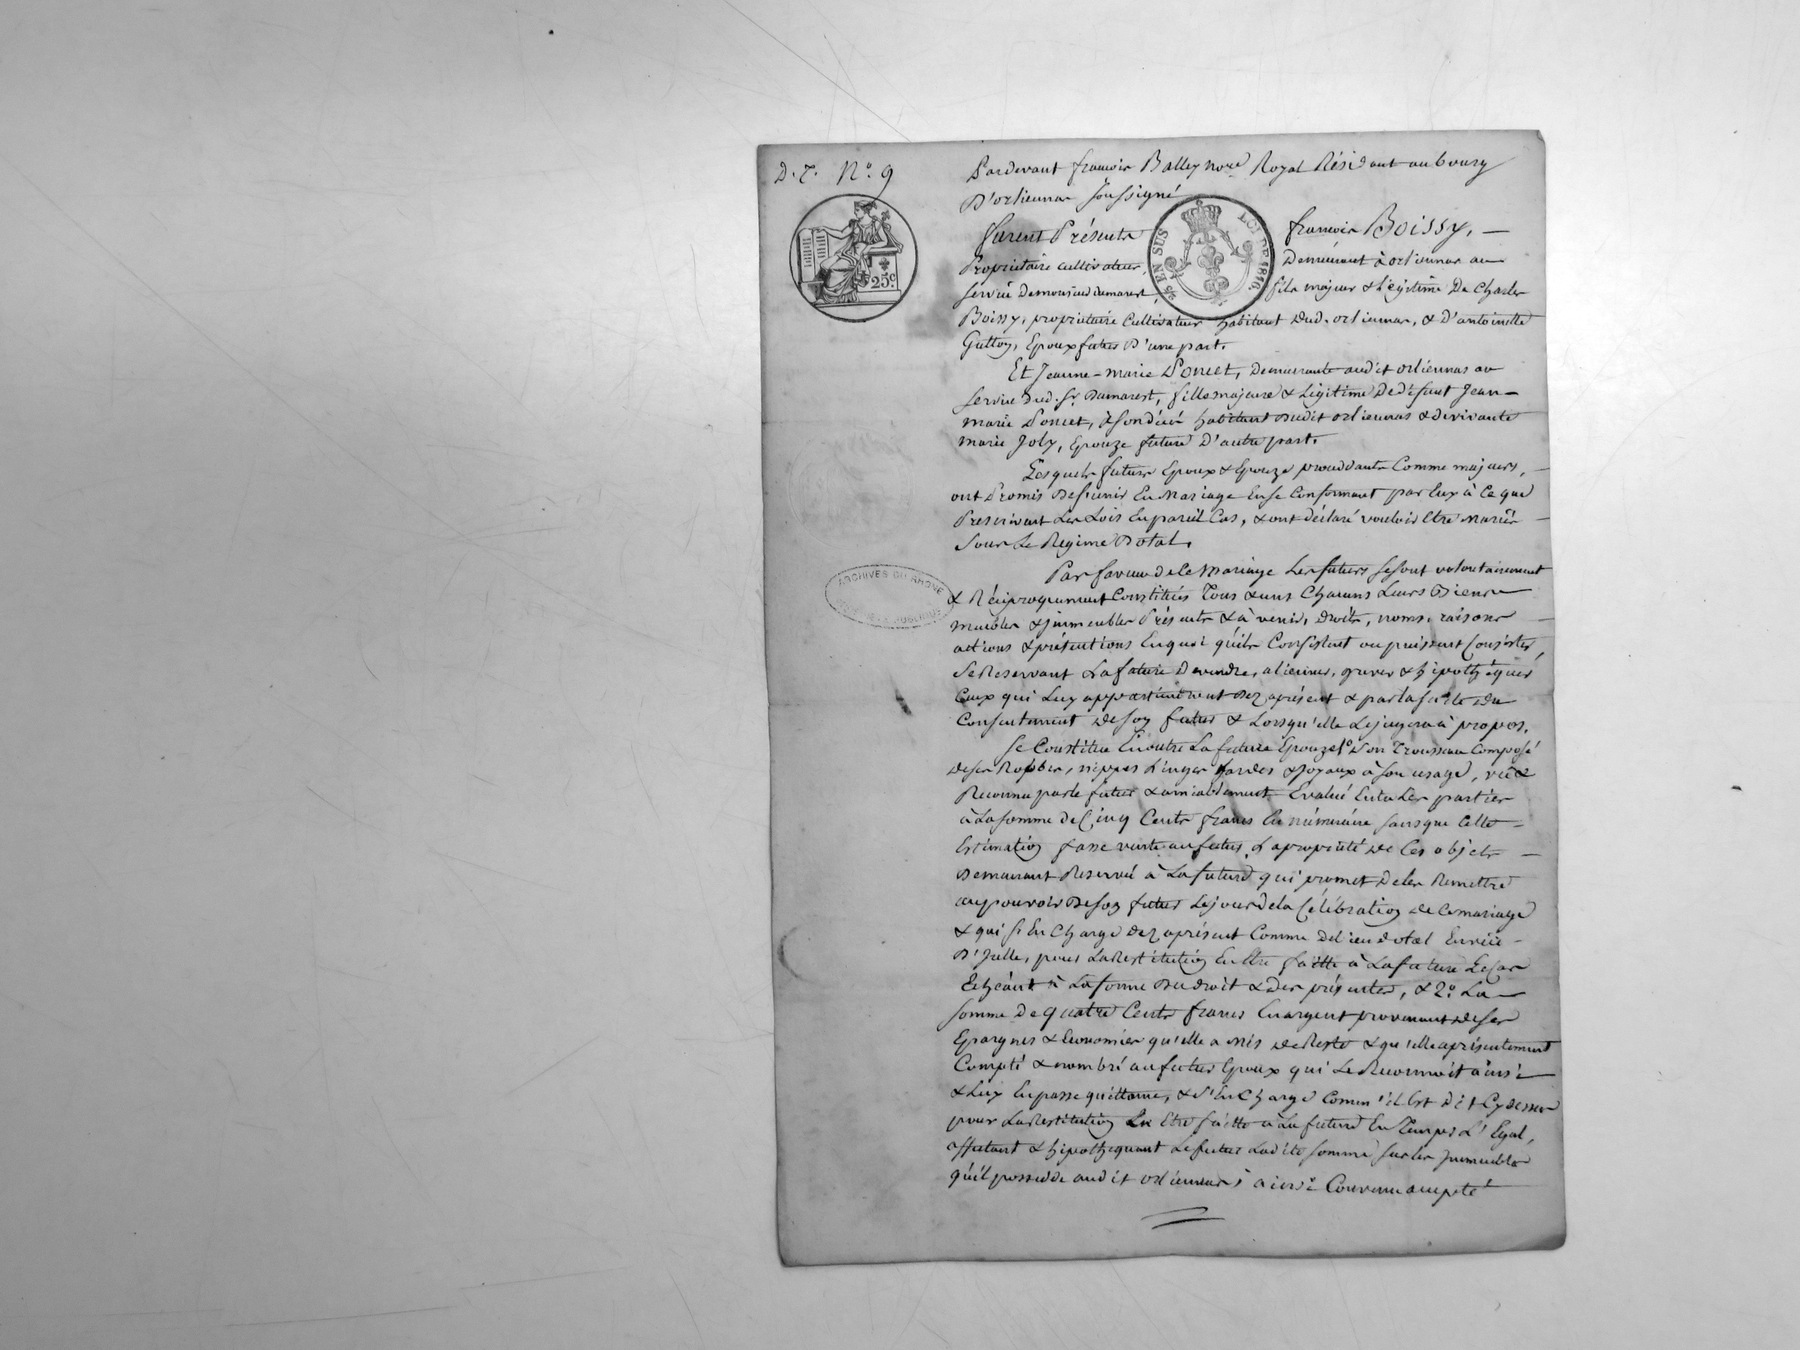 D.T. N.o 9
Pardevant françois Balley no.re Royal Résidant au bourg
D'orliennas soussigné
25c.
25 EN SUS LOI DE 1816.
furent Présents françois Boissy, —
Propriétaire cultivateur, Demeurant à orliennas au
service de monsieur damarest, fils majeur & légitime De Charles
Boissy, propriétaire Cultivateur habitant dud. orliennas, & d'antoinette
Guttoy, Epoux futur D'une part.
Et Jeanne-marie Poncet, Demeurante audit orliennas au
service dud. Sr. Damarest, fille majeure & Légitime De défunt Jean-
marie Poncet, à son décès habitant dudit orliennas & de vivante
marie Joly, Epouze future D'autre part.
Lesquels futurs Epoux & Epouze procédants Comme majeurs, —
ont Promis de s'unir En Mariage En se Conformant par Eux à Ce que
Prescrivent Les Lois En pareil Cas, & ont déclaré vouloir Etre mariés —
sous Le Régime Dotal.
Par faveur de Ce Mariage Les futurs se sont volontairement
& Réciproquement Constitués Tous & uns Chacuns Leurs Biens
ARCHIVES DU RHONE
meubles & immeubles Présents & à venir, droits, noms, raisons —
actions & prétentions En quoi qu'ils Consistent ou puissent Consister,
se Réservant La future De vendre, aliéner, grever & hipothéquer
Ceux qui Luy appartiennent dez aprésent & par la suite du
Consentement de soy futur & Lorsqu'elle Le jugera à propos.
se Constitue En outre La future Epouze 1.o Son Trousseau Composé
de ses Robbes, nippes Linges hardes & joyaux à son usage, vû &
Reconnu par le futur & amiablement Evalué Entre Les parties
à La somme de Cinq Cents francs En numéraire sans que Cette —
Estimation fasse vente au futur, La propriété de Ces objets —
Demeurant Réservée à La future qui promet de les Remettre
au pouvoir de soy futur Le jour de la Célébration de Ce mariage
& qui s'En Charge dez aprésent Comme de bien dotal Envers —
D'Icelle, pour La Restitution En Etre faitte à La future Le Cas
Echéant à La forme du droit & des présentes, & 2.o La —
somme De quatre Cents francs En argent provenant de ses
Epargnes & Economies qu'elle a mis de Reste & qu'elle a présentement
Compté & nombré au futur Epoux qui Le Reconnoît ainsi —
& Luy En passe quittance, & s'En Charge Comm'il Est dit Cy dessus
pour La Restitution En Etre faitte à La future En Temps L'Egal,
affectant & hipothéquant Le futur Ladite somme sur les Immeubles
qu'il possedde audit orliennas, ainsi Convenu accepté